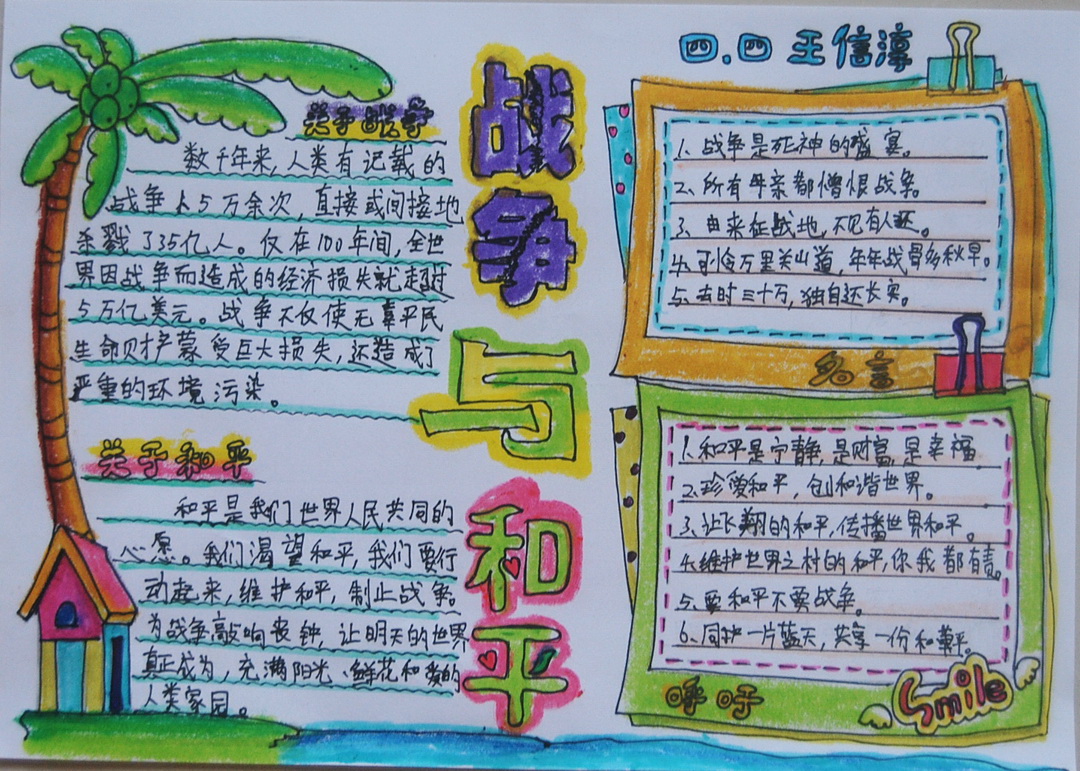 四.四 王信淳
战争与和平
关于战争
数千年来,人类有记载的
战争15万余次,直接或间接地
杀戮了35亿人。仅在100年间,全世
界因战争而造成的经济损失就超过
5万亿美元。战争不仅使无辜平民
生命财产蒙受巨大损失,还造成了
严重的环境污染。
关于和平
和平是我们世界人民共同的
心愿。我们渴望和平,我们要行
动起来,维护和平,制止战争。
为战争敲响丧钟,让明天的世界
真正成为,充满阳光、鲜花和爱的
人类家园。
1、战争是死神的盛宴。
2、所有母亲都憎恨战争。
3、由来征战地,不见有人还。
4、可怜万里关山道,年年战骨多秋草。
5、去时三十万,独自还长安。
名言
1.和平是宁静,是财富,是幸福
2.珍爱和平,创和谐世界。
3.让飞翔的和平,传播世界和平。
4.维护世界之村的和平,你我都有责。
5.要和平不要战争。
6.同护一片蓝天,共享一份和平。
呼吁
Smile